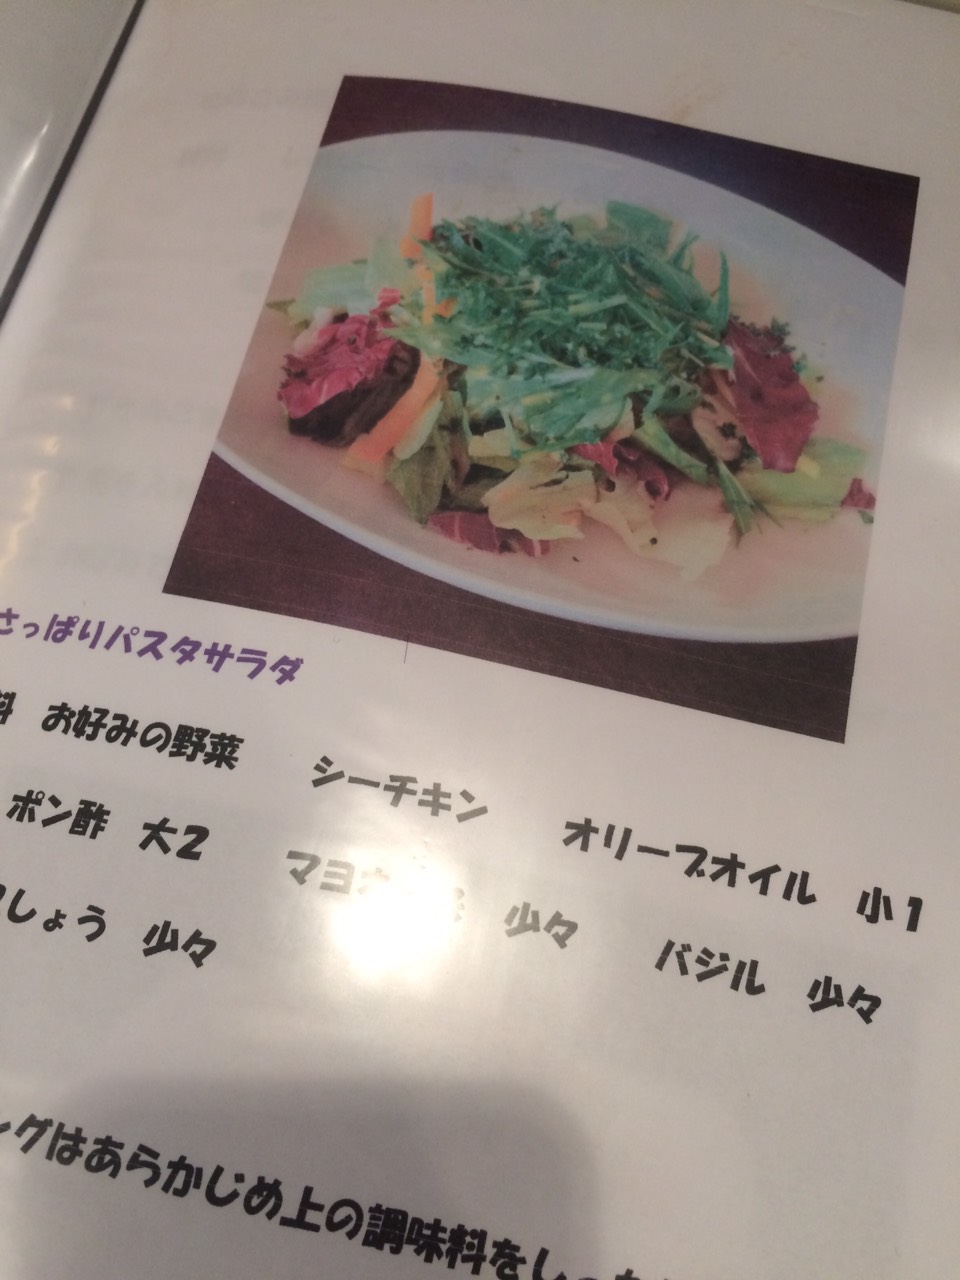 さっぱりパスタサラダ
料 お好みの野菜 シーチキン オリーブオイル 小1
ポン酢 大2 マヨ 少々 バジル 少々
しょう 少々
ングはあらかじめ上の調味料をし